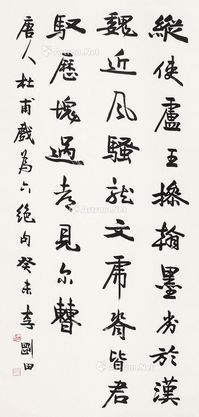 縱使盧王操翰墨劣於漢
魏近風騷龍文虎脊皆君
馭歷塊過都見爾曹
唐人杜甫戲為六絕句癸未李剛田